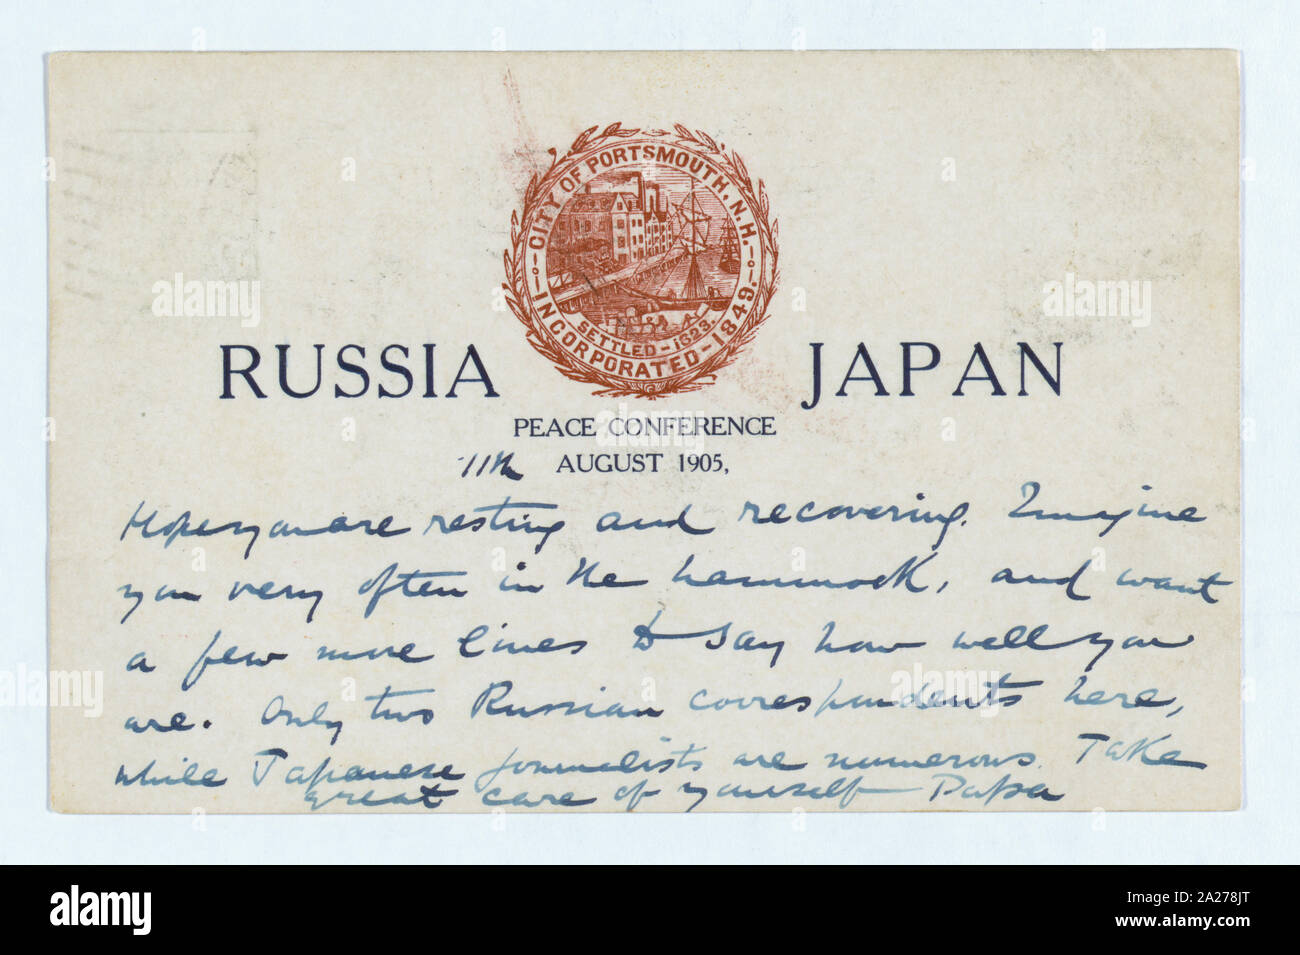 CITY OF PORTSMOUTH, N.H.
SETTLED - 1623.
INCORPORATED - 1849.
RUSSIA JAPAN
PEACE CONFERENCE
11th AUGUST 1905,
Hope you are resting and recovering. Imagine
you very often in the hammock, and want
a few more lines to say how well you
are. Only two Russian correspondents here,
while Japanese journalists are numerous. Take
great care of yourself Papa
alamy
alamy
Image ID: 2A278JT
www.alamy.com